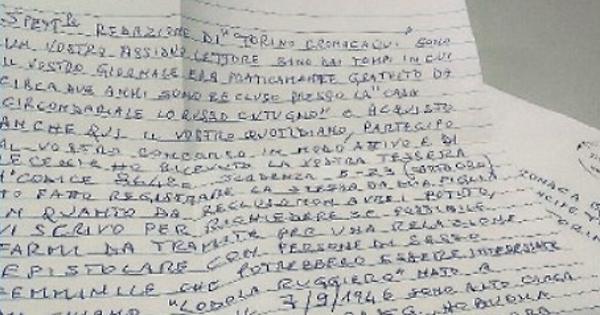 SPETT.LE REDAZIONE DI "TORINO CRONACAQUI" SONO
UN VOSTRO ASSIDUO LETTORE SINO DAI TEMPI IN CUI
IL VOSTRO GIORNALE ERA PRATICAMENTE GRATUITO DA
CIRCA DUE ANNI SONO RECLUSO PRESSO LA "CASA
CIRCONDARIALE LO RUSSO CUTUGNO" E ACQUISTO
ANCHE QUI IL VOSTRO QUOTIDIANO, PARTECIPO
AL VOSTRO CONCORSO IN MODO ATTIVO E DI
RECENTE HO RICEVUTO LA VOSTRA TESSERA
CODICE SCADENZA 5-23
HO FATTO REGISTRARE LA STESSA DA MIA FIGLIA
IN QUANTO DA RECLUSO NON AVREI POTUTO,
VI SCRIVO PER RICHIEDERE SE POSSIBILE
FARMI DA TRAMITE PER UNA RELAZIONE
EPISTOLARE CON PERSONE DI SESSO
FEMMINILE CHE POTREBBERO ESSERE INTERESSATE
"LODOLA RUGGIERO" NATO A
7/9/1946 SONO ALTO CIRCA